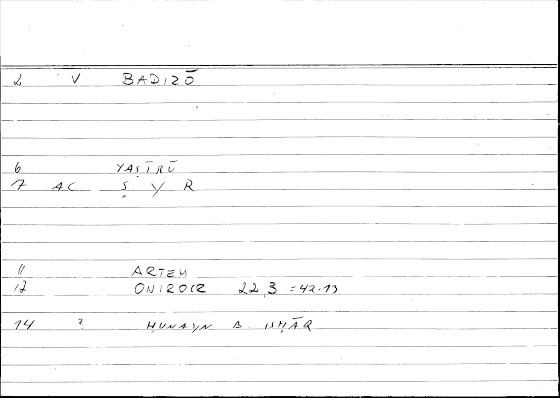 2 V BADIZŌ
6 YAṢĪRŪ
7 AC Ṣ Y R
11 ARTEM
12 ONIROCR 22,3 = 42.13
14 ? ḤUNAYN B. ISḤĀQ